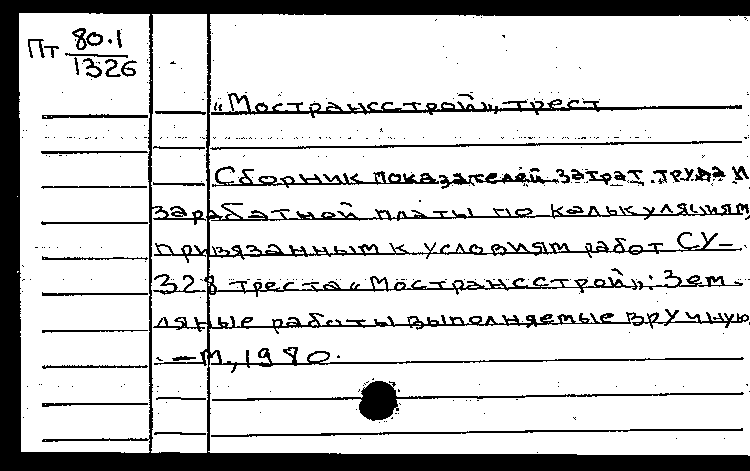 Пт 80.1
1326
"Мострансстрой", трест
Сборник показателей затрат труда и
заработной платы по калькуляциям
привязанным к условиям работ СУ-
328 треста "Мострансстрой": Зем-
ляные работы выполняемые вручную
.-М., 1980.